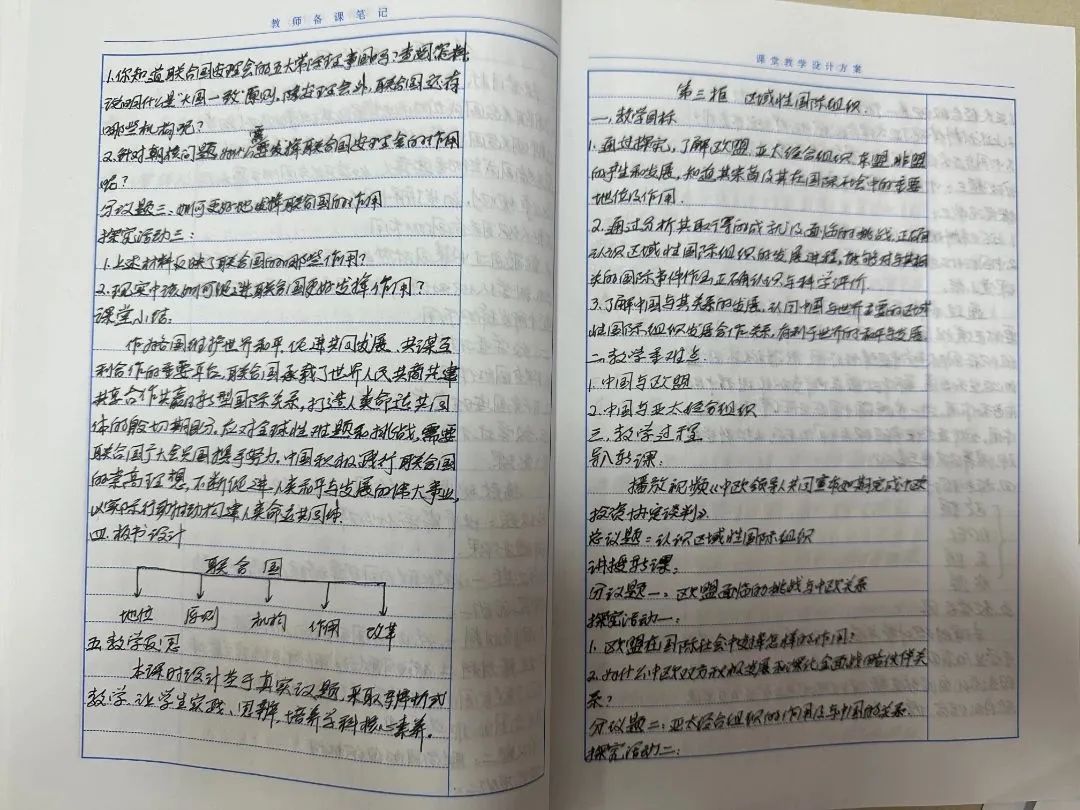 教师备课笔记
1.你知道联合国安理会的五大常任理事国吗?查阅资料
说明什么是"大国一致"原则。除安理会外,联合国还有
哪些机构呢?
2.针对朝核问题,如何需要发挥联合国安理会的对作用
呢?
分议题三:如何更好地发挥联合国的作用
探究活动三:
1.上述材料反映了联合国的哪些作用?
2.现实中该如何促进联合国更好发挥作用?
课堂小结:
作为各国维护世界和平,促进共同发展,共谋互
利合作的重要平台,联合国承载了世界人民共商共建
共享合作共赢的新型国际关系,打造人类命运共同
体的殷切期盼,应对全球性难题和挑战,需要
联合国广大会员国携手努力。中国积极践行联合国
的崇高理想,不断促进人类和平与发展的伟大事业,
以实际行动推动构建人类命运共同体.
四.板书设计
联合国
地位 原则 机构 作用 改革
五.教学反思
本课时设计基于真实议题,采取导辨析式
教学,让学生实践、思辨,培养学科核心素养。
课堂教学设计方案
第三框 区域性国际组织.
一.教学目标
1.通过探究,了解欧盟.亚太经合组织.东盟.非盟
的产生和发展,知道其宗旨及其在国际社会中的主要
地位及作用.
2.通过分析其取得的成就及面临的挑战,正确
认识区域性国际组织的发展进程,能够对与其相
关的国际事件作出正确认识与科学评价.
3.了解中国与其关系的发展,认同中国与世界主要的区域
性国际组织发展合作关系,有利于世界的和平与发展.
二.教学重难点
1.中国与欧盟
2.中国与亚太经合组织
三.教学过程
导入新课:
播放视频《中欧领导人共同宣布如期完成中欧
投资协定谈判》
总议题:认识区域性国际组织
讲授新课:
分议题一:欧盟面临的挑战与中欧关系
探究活动一:
1.欧盟在国际社会中发挥怎样的作用?
2.为什么中欧双方积极发展和深化全面战略伙伴关
系?
分议题二:亚太经合组织的作用及与中国的关系.
探究活动二: